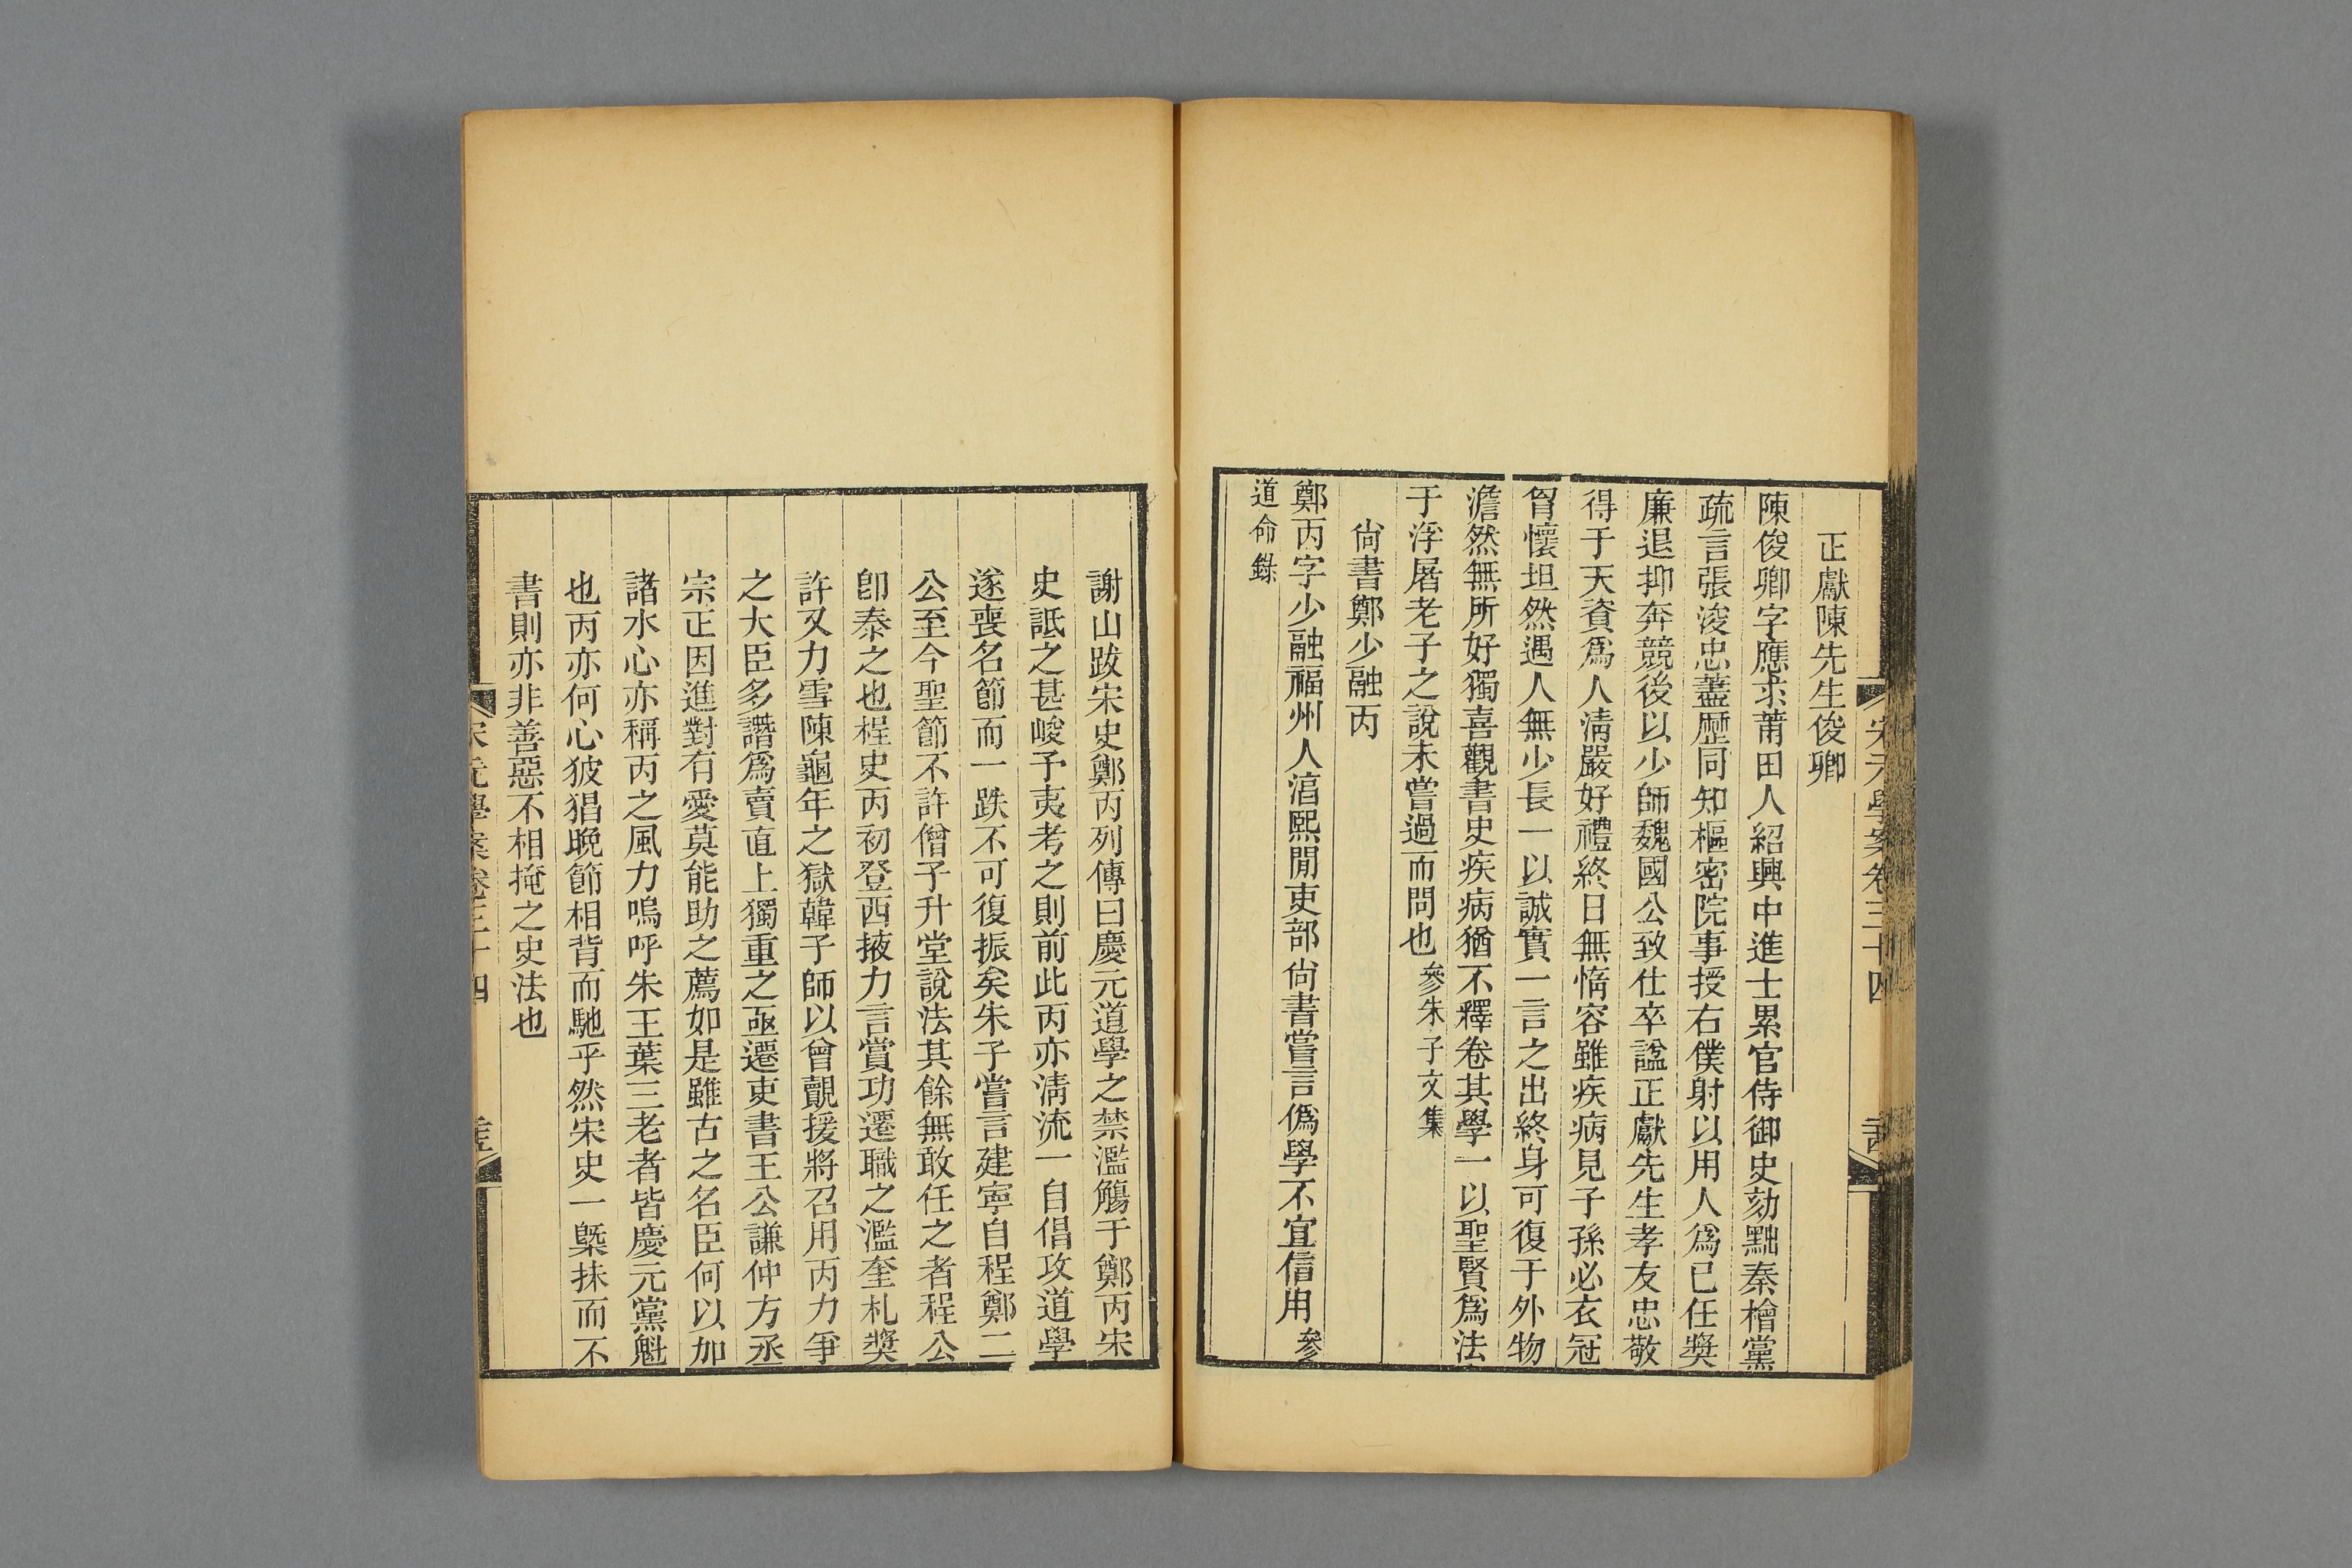 宋元學案卷三十四
正獻陳先生俊卿
陳俊卿字應求莆田人紹興中進士累官侍御史劾黜秦檜黨
疏言張浚忠藎歷同知樞密院事授右僕射以用人爲己任奬
廉退抑奔競後以少師魏國公致仕卒諡正獻先生孝友忠敬
得于天資爲人淸嚴好禮終日無惰容雖疾病見子孫必衣冠
胷懷坦然遇人無少長一以誠實一言之出終身可復于外物
澹然無所好獨喜觀書史疾病猶不釋卷其學一以聖賢爲法
于浮屠老子之說未嘗過而問也參朱子文集
尙書鄭少融丙
鄭丙字少融福州人湻熙閒吏部尙書嘗言僞學不宜信用參
道命錄
謝山跋宋史鄭丙列傳曰慶元道學之禁濫觴于鄭丙宋
史詆之甚峻予夷考之則前此丙亦淸流一自倡攻道學
遂喪名節而一跌不可復振矣朱子嘗言建寧自程鄭二
公至今聖節不許僧子升堂說法其餘無敢任之者程公
卽泰之也桯史丙初登西掖力言賞功遷職之濫奎札奬
許又力雪陳龜年之獄韓子師以曾覿援將召用丙力爭
之大臣多譖爲賣直上獨重之亟遷吏書王公謙仲方丞
宗正因進對有愛莫能助之薦如是雖古之名臣何以加
諸水心亦稱丙之風力嗚呼朱王葉三老者皆慶元黨魁
也丙亦何心狓猖晩節相背而馳乎然宋史一槩抹而不
書則亦非善惡不相掩之史法也
宋元學案卷三十四